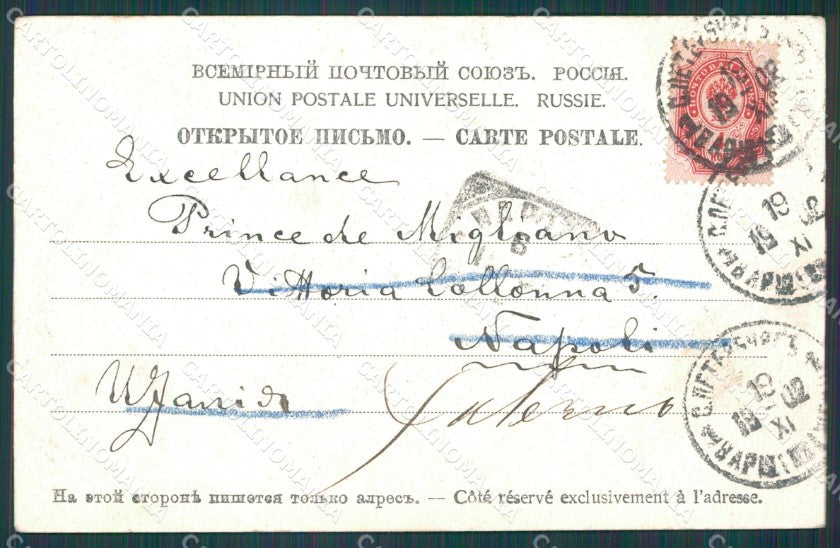 ВСЕМІРНЫЙ ПОЧТОВЫЙ СОЮЗЪ. РОССІЯ.
UNION POSTALE UNIVERSELLE. RUSSIE.
ОТКРЫТОЕ ПИСЬМО. — CARTE POSTALE.
Excellance
Prince de Migliano
Vittoria Collonna 5.
Napoli
Salerno
На этой сторонѣ пишется только адресъ. — Côté réservé exclusivement à l'adresse.
С.ПЕТЕРБУРГЪ
19 XI 1902
ВАРШ
CARTOLINOMANIA